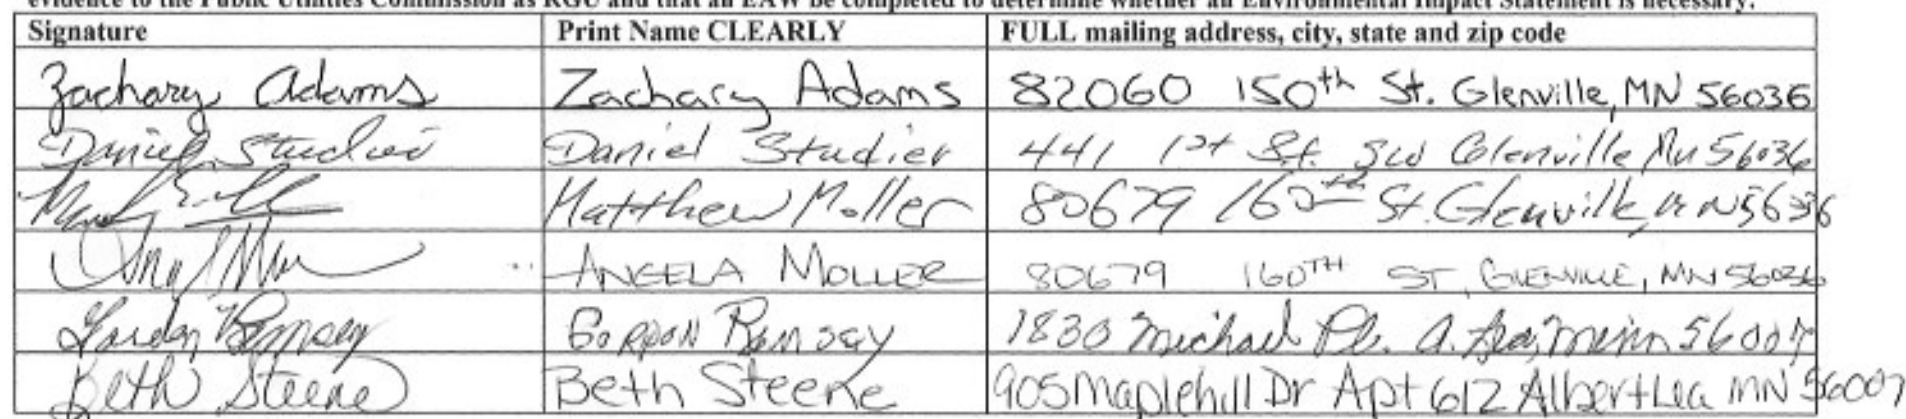 evidence to the Public Utilities Commission as RGU and that an EAW be completed to determine whether an Environmental Impact Statement is necessary.
Signature Print Name CLEARLY FULL mailing address, city, state and zip code
Zachary Adams Zachary Adams 82060 150th St. Glenville, MN 56036
Daniel Studier Daniel Studier 441 1st St. SW Glenville Mn 56036
Matthew Moller 80679 160th St. Glenville, MN 56036
ANGELA MOLLER 80679 160TH ST, GLENVILLE, MN 56036
Gordon Ramsey GORDON RAMSEY 1830 Michael Pl. A. Lea, Minn 56007
Beth Steene Beth Steene 905 Maplehill Dr Apt 612 Albert Lea MN 56007